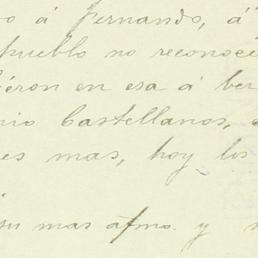 o á fernando, á
pueblo no reconoci
iéron en esa á ber
nio Castellanos,
es mas, hoy los
su mas afmo. y